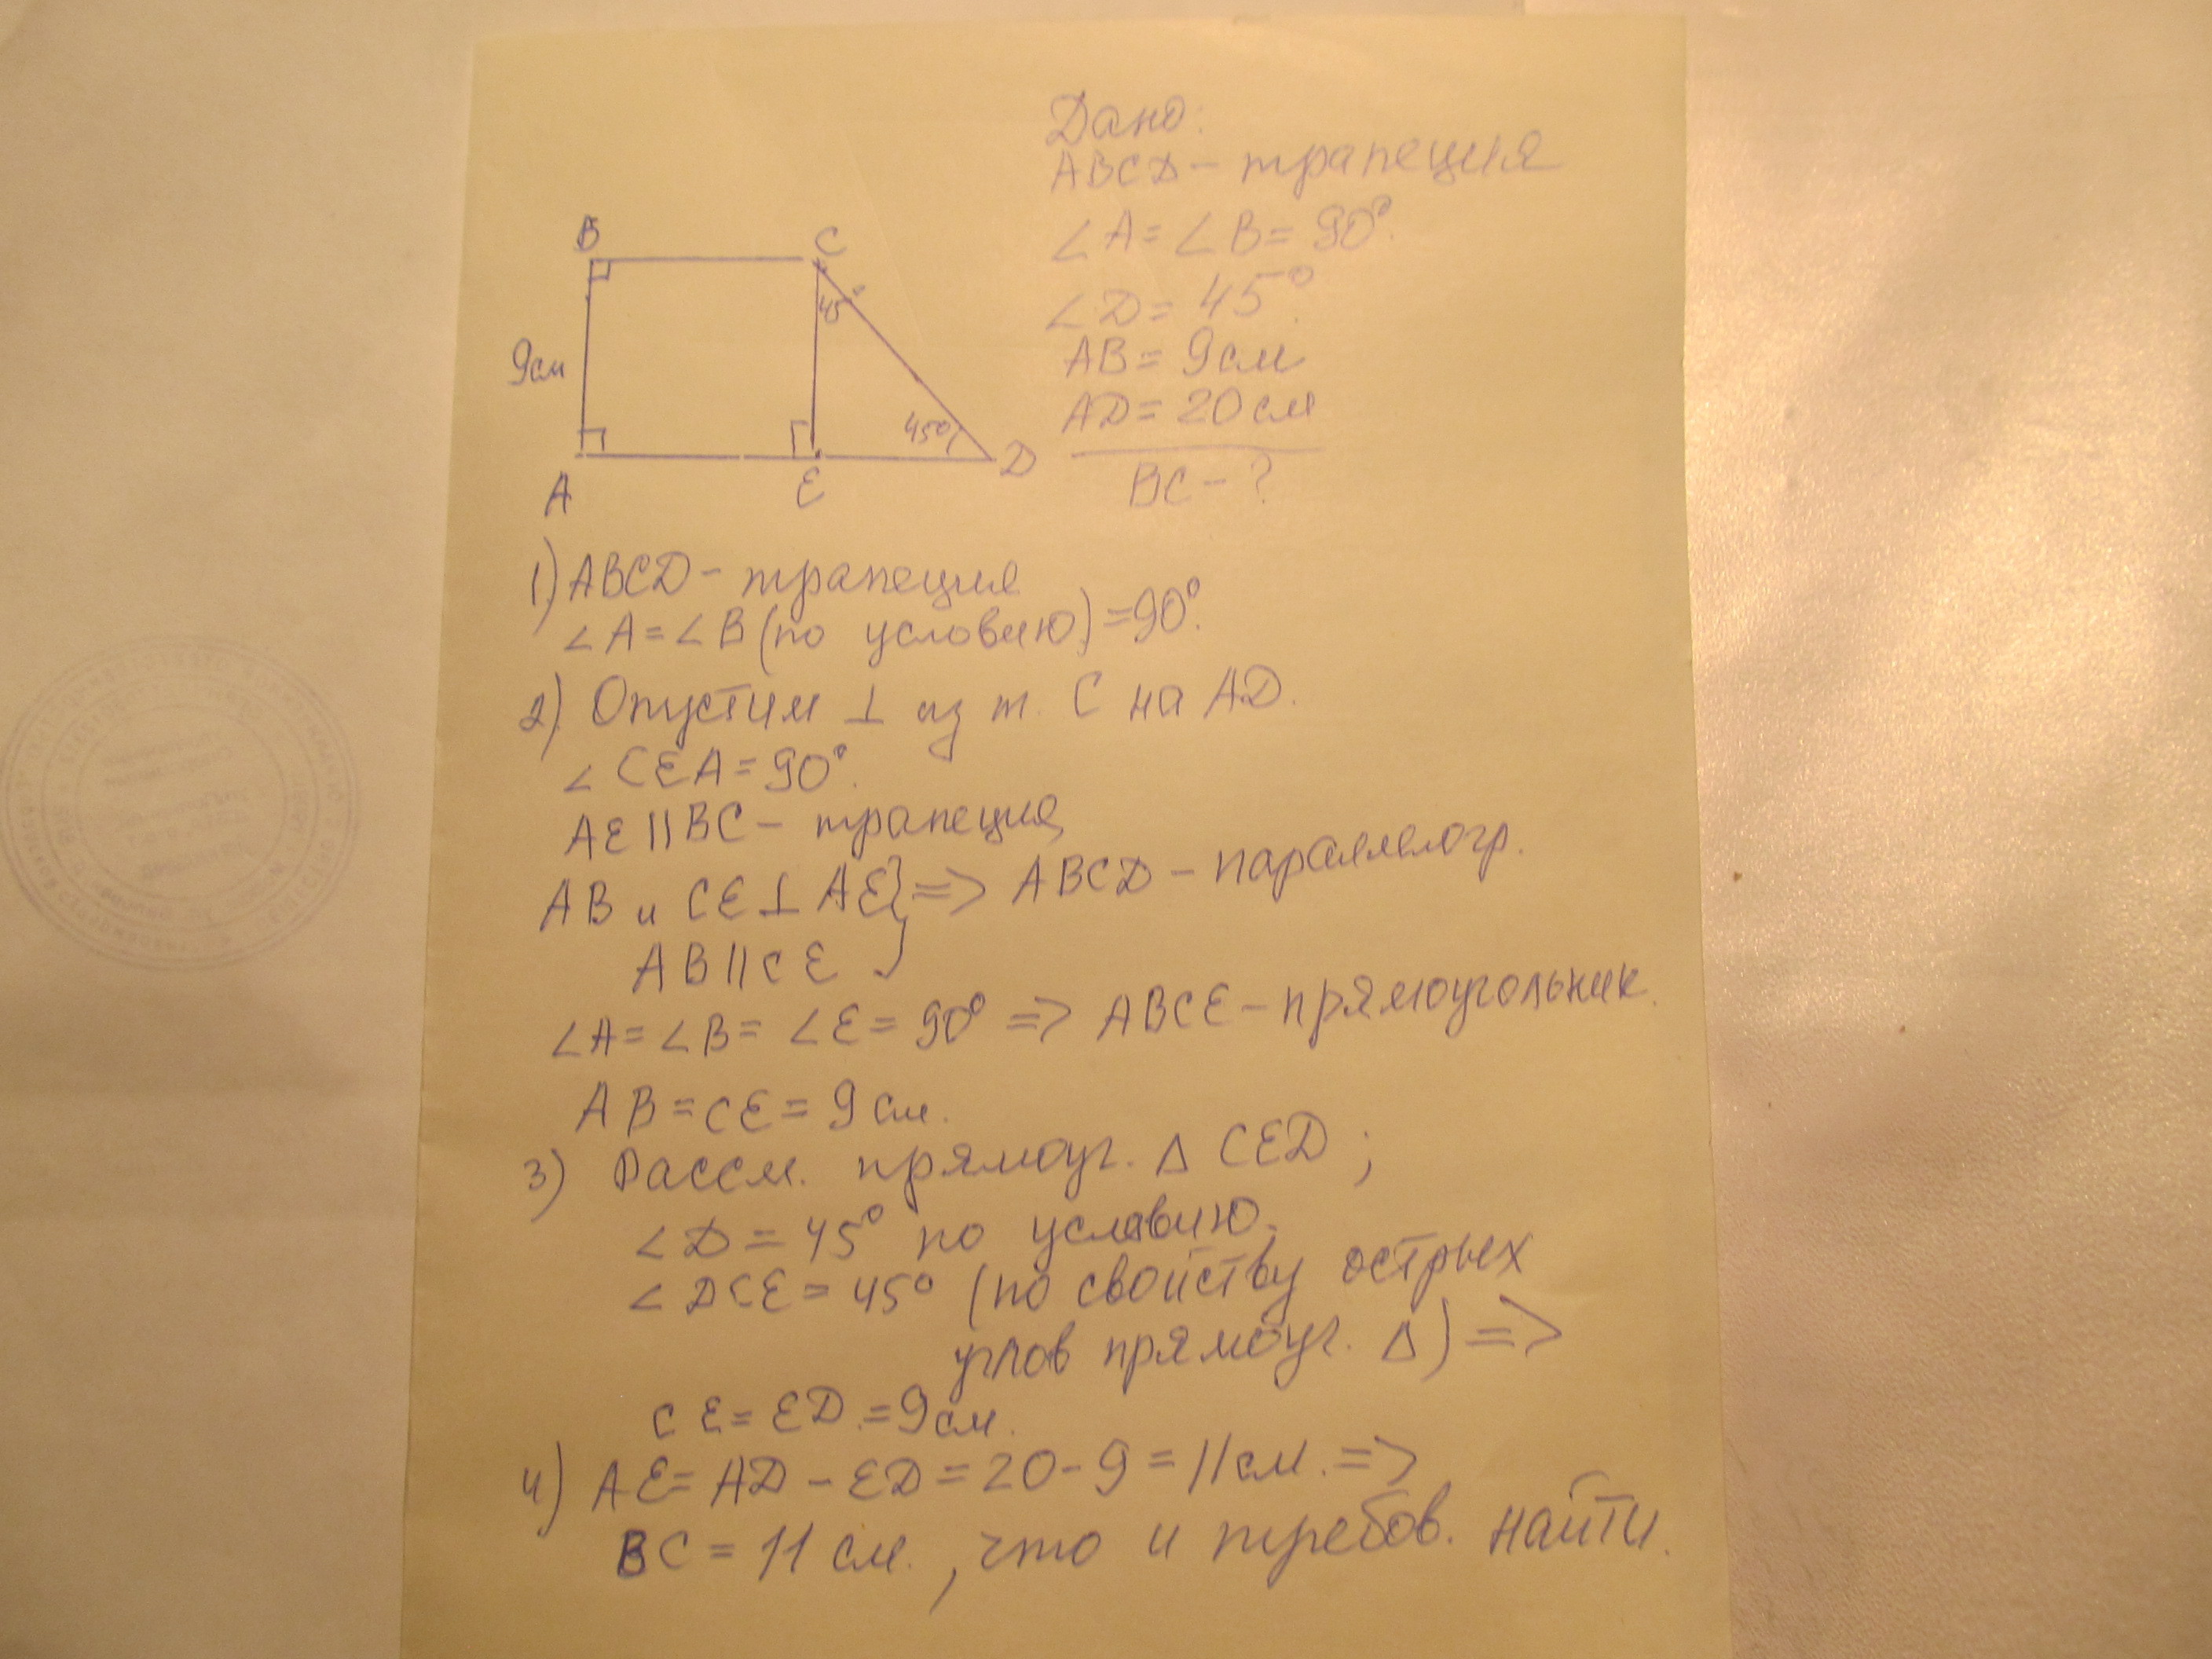 Дано:
ABCD - трапеция
∠A = ∠B = 90°.
∠D = 45°.
AB = 9см
AD = 20см
BC - ?
B
C
45°
9см
45°
A
E
D
1) ABCD - трапеция
∠A = ∠B (по условию) = 90°.
2) Опустим ⊥ из т. C на AD.
∠CEA = 90°.
AE || BC - трапеция,
AB и CE ⊥ AE } => ABCD - параллелогр.
AB || CE
∠A = ∠B = ∠E = 90° => ABCE - прямоугольник.
AB = CE = 9 см.
3) Рассм. прямоуг. Δ CED;
∠D = 45° по условию,
∠DCE = 45° (по свойству острых
углов прямоуг. Δ) =>
CE = ED = 9 см.
4) AE = AD - ED = 20 - 9 = 11 см. =>
BC = 11 см., что и требов. найти.